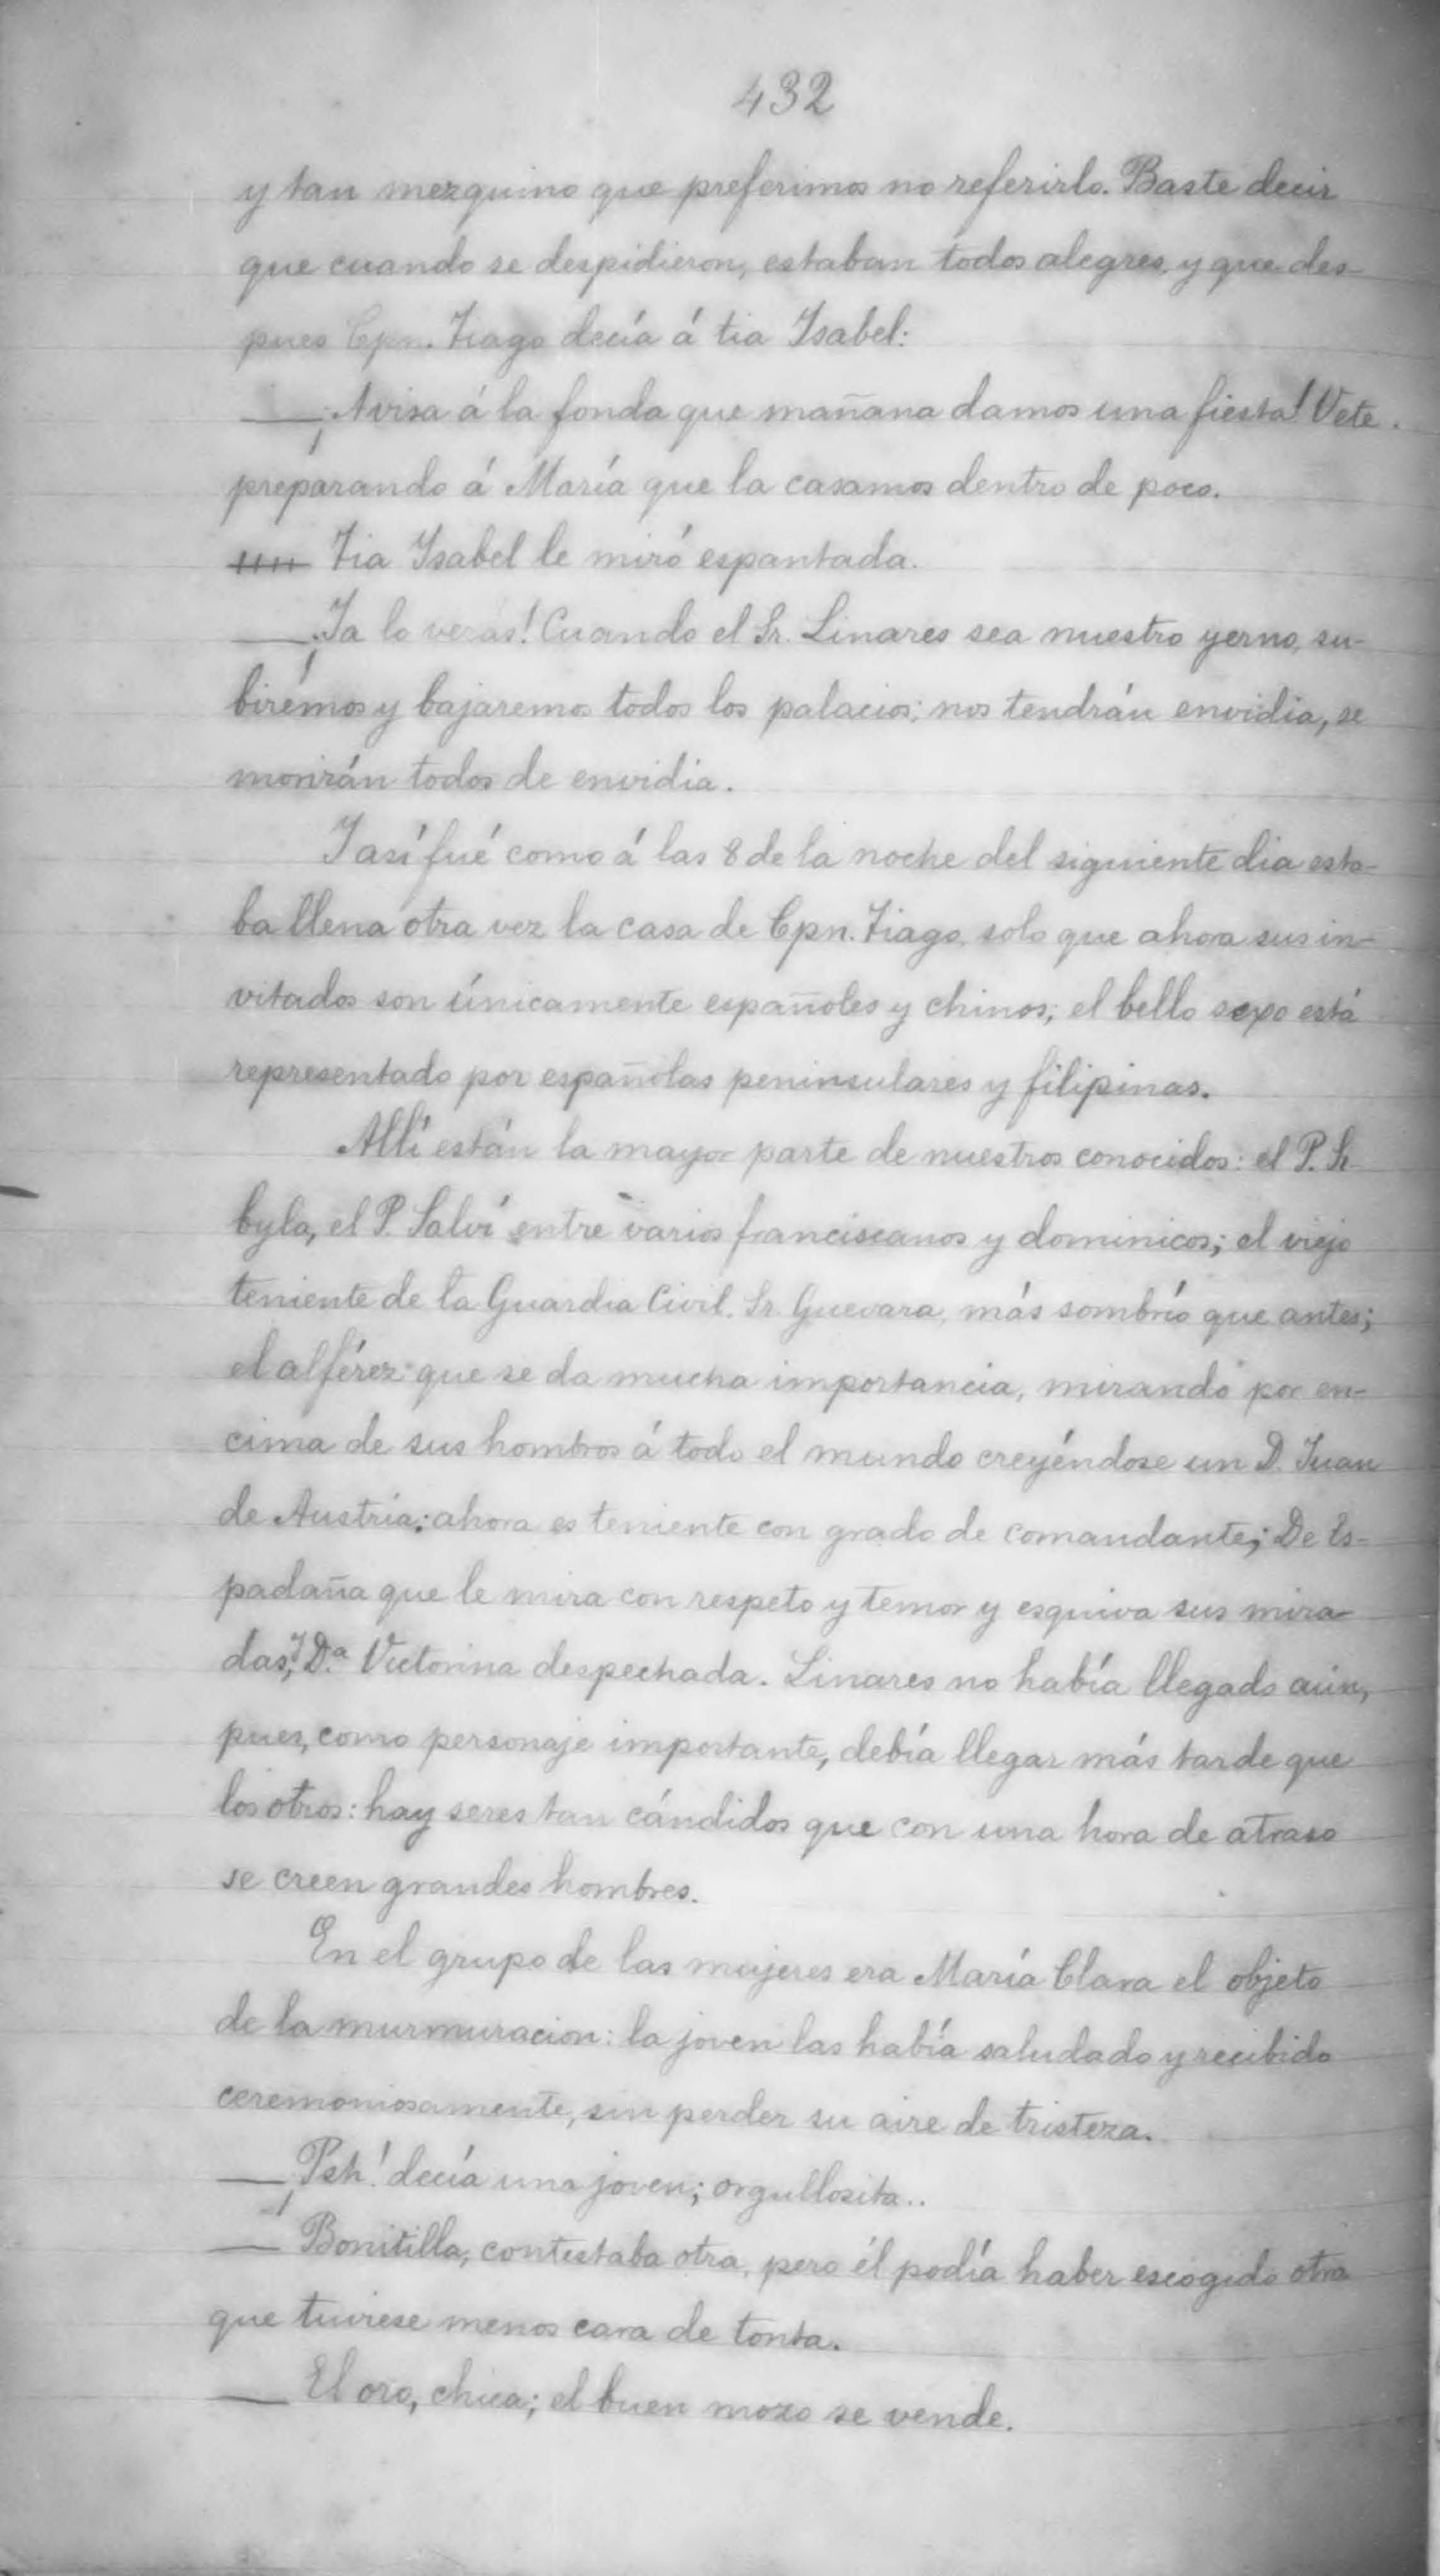 432
y tan mezquino que preferimos no referirlo. Baste decir
que cuando se despidieron, estaban todos alegres, y que des-
pues Cpn. Tiago decía á tia Isabel:
— ¡Avisa á la fonda que mañana damos una fiesta! Vete
preparando á María que la casamos dentro de poco.
Tia Isabel le miró espantada.
— ¡Ya lo verás! Cuando el Sr. Linares sea nuestro yerno, su-
birémos y bajaremos todos los palacios; nos tendrán envidia, se
morirán todos de envidia.
Y así fué como á las 8 de la noche del siguiente dia esta-
ba llena otra vez la casa de Cpn. Tiago, solo que ahora sus in-
vitados son únicamente españoles y chinos; el bello sexo está
representado por españolas peninsulares y filipinas.
Allí están la mayor parte de nuestros conocidos: el P. Si
byla, el P. Salví entre varios franciscanos y dominicos; el viejo
teniente de la Guardia Civil. Sr. Guevara, más sombrío que antes;
el alférez que se da mucha importancia, mirando por en-
cima de sus hombros á todo el mundo creyéndose un D. Juan
de Austria; ahora es teniente con grado de comandante; De Es-
padaña que le mira con respeto y temor y esquiva sus mira-
das, y D.ª Victorina despechada. Linares no había llegado aún,
pues, como personaje importante, debía llegar más tarde que
los otros: hay seres tan cándidos que con una hora de atraso
se creen grandes hombres.
En el grupo de las mujeres era María Clara el objeto
de la murmuracion: la joven las había saludado y recibido
ceremoniosamente, sin perder su aire de tristeza.
— ¡Psh! decía una joven; orgullosita..
— Bonitilla, contestaba otra, pero él podía haber escogido otra
que tuviese menos cara de tonta.
— El oro, chica; el buen mozo se vende.